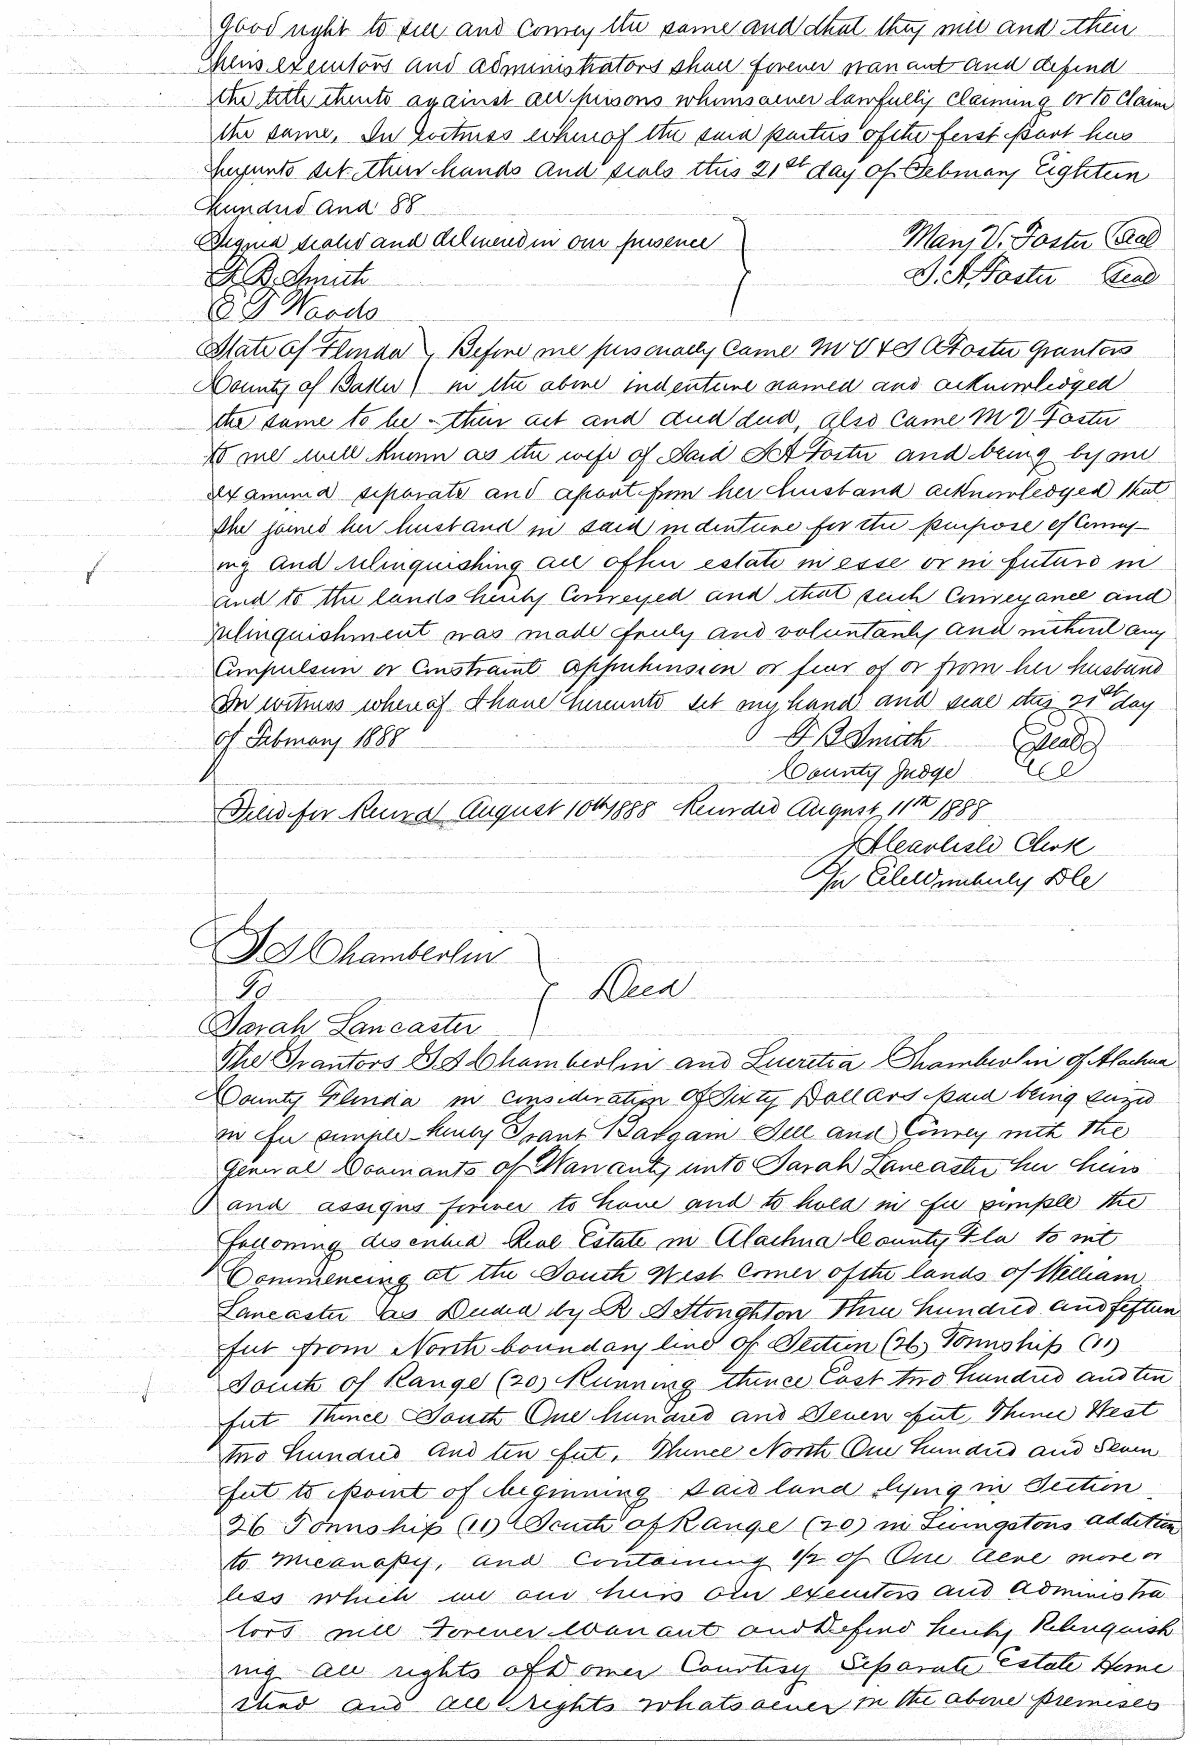 good right to sell and convey the same and that they will and their
heirs executors and administrators shall forever warrant and defend
the title thereto against all persons whomsoever lawfully claiming or to claim
the same, In witness whereof the said parties of the first part has
hereunto set their hands and seals this 21st day of February Eighteen
hundred and 88
Signed sealed and delivered in our presence } Mary V. Foster Seal
F. B. Smith S. A. Foster Seal
Woods
State of Florida } Before me personally Came M V & S A Foster Grantors
County of Baker } in the above indenture named and acknowledged
the same to be their act and deed, also Came M V Foster
to me well known as the wife of Said S A Foster and being by me
examined separate and apart from her husband acknowledged that
she joined her husband in said indenture for the purpose of Convey-
ing and relinquishing all of her estate in esse or in futuro in
and to the lands hereby Conveyed and that such Conveyance and
relinquishment was made freely and voluntarily and without any
Compulsion or Constraint apprehension or fear of or from her husband
In witness whereof I have hereunto set my hand and seal this 21st day
of February 1888 F B Smith Seal
County Judge
Filed for Record August 10th 1888 Recorded August 11th 1888
Carlisle Clerk
Wimberly D C
S S Chamberlin
To } Deed
Sarah Lancaster
The Grantors S S Chamberlin and Lucretia Chamberlin of Alachua
County Florida in consideration of Sixty Dollars paid being seized
in fee simple hereby Grant Bargain Sell and Convey with the
General Covenants of Warranty unto Sarah Lancaster her heirs
and assigns forever to have and to hold in fee simple the
following described Real Estate in Alachua County Fla to wit
Commencing at the South West Corner of the lands of William
Lancaster as Deeded by R S Stoughton Three hundred and fifteen
feet from North boundary line of Section (26) Township (11)
South of Range (20) Running thence East two hundred and ten
feet Thence South One hundred and Seven feet, Thence West
two hundred and ten feet, Thence North One hundred and Seven
feet to point of beginning said land lying in Section
26 Township (11) South of Range (20) in Livingstons addition
to Micanopy, and containing 1/2 of One Acre more or
less which we our heirs our executors and administra
tors will Forever Warrant and Defend hereby Relinquish
ing all rights of Dower Courtesy Separate Estate Home
stead and all rights whatsoever in the above premises